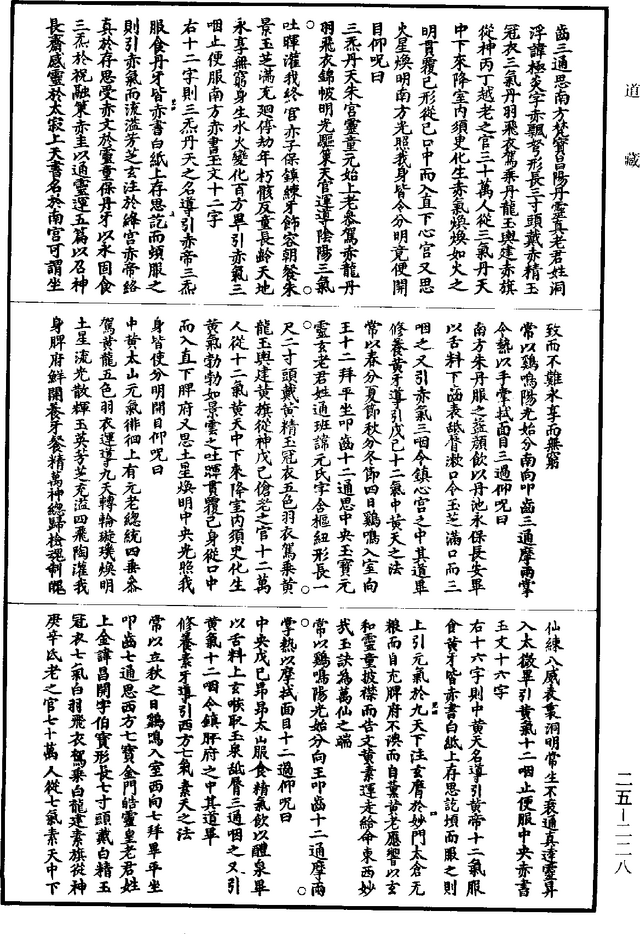 道藏
齒三通思南方梵寶昌陽丹靈真老君姓洞
浮諱極炎字赤飄弩形長三寸頭戴赤精玉
冠衣三氣丹羽飛衣駕乘丹龍玉輿建赤旗
從神丙丁越老之官三十萬人從三氣丹天
中下來降室內須臾化生赤氣煥煥如火之
明貫覆己形從己口中而入直下心宮又思
火星煥明南方光照我身皆令分明竟便開
目仰呪曰
三炁丹天朱宮靈童元始上老參駕赤龍丹
羽飛衣錦帔明光驅策天官運導陰陽三氣
吐暉灌我絳宮赤子保鎮練牙飾容朝餐朱
景玉芝滿充迴停劫年朽骸反童長齡天地
永享無窮身生水火變化百方畢引赤氣三
咽止便服南方赤書玉文十二字
右十二字則三炁丹天之名導引赤帝三炁
服食丹牙皆赤書白紙上存思訖而頓服之
則引赤氣而流溢芳芝玄注於絳宮赤帝絡
真於存思受赤文於靈童保丹牙以永固食
三炁於祝融策赤圭以通靈運五篇以召神
長齋感靈於太寂上天書名於南宮可謂坐
致而不難永享而無窮
常以鷄鳴陽光始分南向叩齒三通摩兩掌
令熱以手掌拭面目三過仰呪曰
南方朱丹服之益顏飲以丹池永保長安畢
以舌料下齒表舐脣漱口令玉芝滿口而三
咽之又引赤氣三咽令鎮心宮之中其道畢
修養黃牙導引戊己十二氣中黃天之法
常以春分夏節秋分冬節四日鷄鳴入室向
王十二拜平坐叩齒十二通思中央玉寶元
靈玄老君姓通班諱元氏字含樞紐形長一
尺二寸頭戴黃精玉冠衣五色羽衣駕乘黃
龍玉輿建黃旗從神戊己倉老之官十二萬
人從十二氣黃天中下來降室內須臾化生
黃氣勃勃如景雲之吐暉貫覆己身從口中
而入直下脾府又思土星煥明中央光照我
身皆使分明開目仰呪曰
中黃太山元氣徘徊上有元老總統四垂參
駕黃龍五色羽衣運導九天轉輪璇璣煥明
土星流光散輝玉英芳芝充溢四飛陶灌我
身脾府鮮開養牙餐精萬神總歸檢魂制魄
仙練八威表裏洞明常生不衰通真達靈昇
入太微畢引黃氣十二咽止便服中央赤書
玉文十六字
右十六字則中黃天名導引黃帝十二氣服
食黃牙皆赤書白紙上存思訖頓而服之則
上引元氣於九天下注玄膺於妙門太倉无
粮而自充脾府不溉而自熏黃老應響以玄
和靈童披襟而告文黃素運走給命東西妙
哉玉訣為萬仙之端
常以鷄鳴陽光始分向王叩齒十二通摩兩
掌熱以摩拭面目十二過仰呪曰
中央戊己昂昂太山服食精氣飲以醴泉畢
以舌料上玄膺取玉泉舐脣三通咽之又引
黃氣十二咽令鎮脾府之中其道畢
修養素牙導引西方七氣素天之法
常以立秋之日鷄鳴入室西向七拜畢平坐
叩齒七通思西方七寶金門皓靈皇老君姓
上金諱昌開字伯寶形長七寸頭戴白精玉
冠衣七氣白羽飛衣駕乘白龍建素旗從神
庚辛氐老之官七十萬人從七氣素天中下
二五—二二八